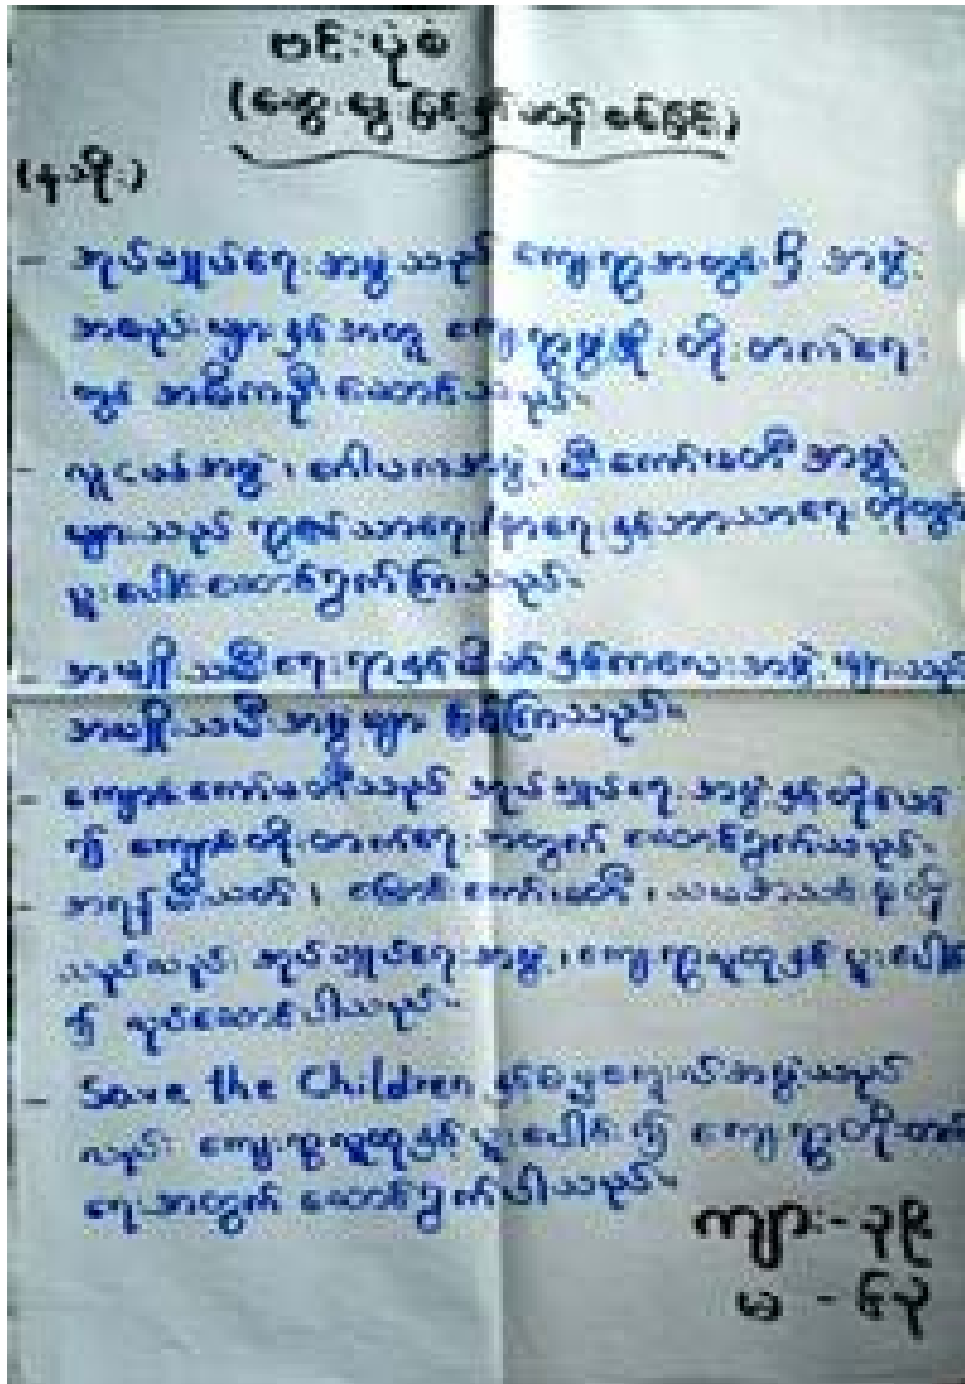 ဗင်းပုံစံ
(ဆွေးနွေးခြင်းနှင့် မာန် စစ်ခြင်း)
(နသိုး)
- အုပ်ချုပ်ရေးအဖွဲ့သည် ကျေးရွာအတွင်းရှိ အဖွဲ့
အစည်းများနှင့်အတူ ကျေးရွာဖွံ့ဖြိုး တိုးတက်ရေး
တွင် အဓိကဦးဆောင်သည်။
- လူငယ်အဖွဲ့၊ ဂေါပကအဖွဲ့၊ မီးကော်မတီအဖွဲ့
များသည် ရွာ၏သာရေး၊ နာရေးနှင့်ဘာသာရေးတို့တွင်
ပူးပေါင်းဆောင်ရွက်ကြသည်။
- အမျိုးသမီးရေးရာနှင့်မိခင်နှင့်ကလေးအဖွဲ့များသည်
အမျိုးသမီးအဖွဲ့များ ဖြစ်ကြသည်။
- ကျောင်းကော်မတီသည် အုပ်ချုပ်ရေးအဖွဲ့နှင့်တိုင်ပင်
၍ ကျောင်းတိုးတက်ရေးအတွက် ဆောင်ရွက်သည်။
- အရန်မီးသတ်၊ မြောင်းကော်မတီ၊
သည်လည်း အုပ်ချုပ်ရေးအဖွဲ့၊ ကျေးရွာလူထုနှင့် ပူးပေါင်း
၍ လုပ်ဆောင်ပါသည်။
- Save the Children နှင့် အဖွဲ့သည်
လည်း ကျေးရွာလူထုနှင့်ပူးပေါင်း၍ ကျေးရွာတိုးတက်
ရေးအတွက် ဆောင်ရွက်ပါသည်။
ကျား - ၃၉
မ - ၆၃